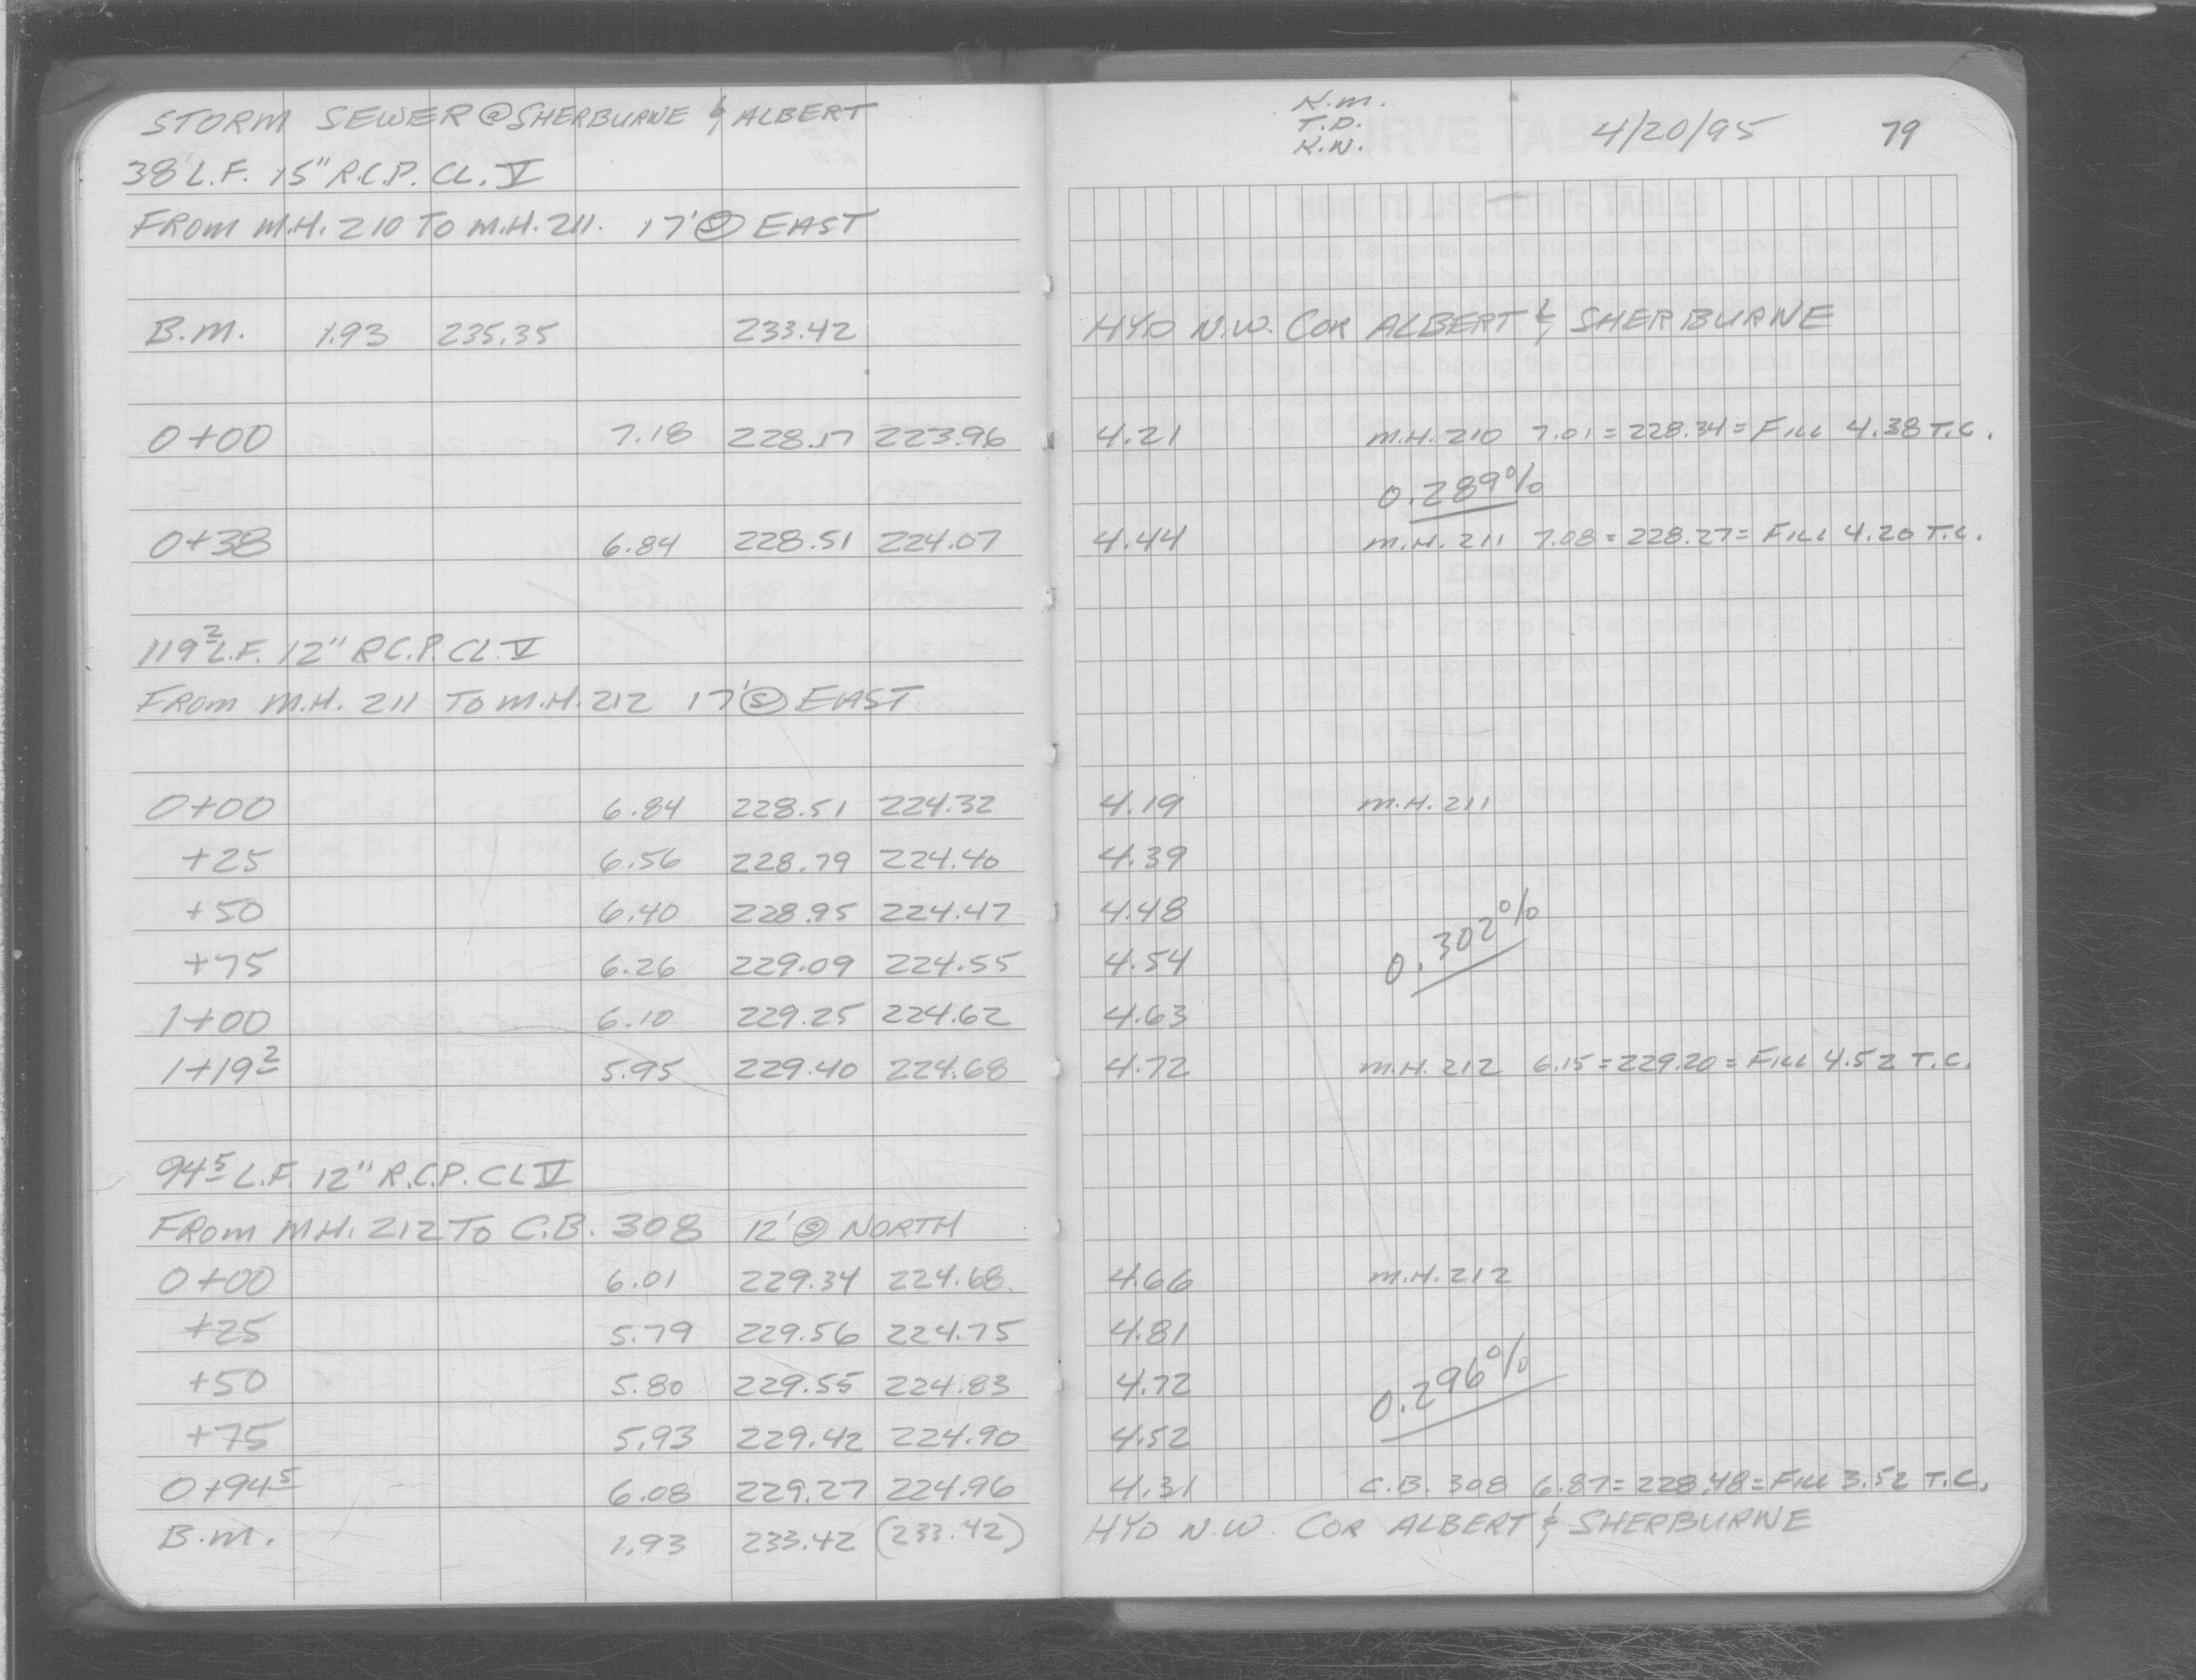 STORM SEWER @ SHERBURNE & ALBERT
38' L.F. 15" R.C.P. CL. V
FROM M.H. 210 TO M.H. 211. 17' Ⓢ EAST
B.M. 1.93 235.35 233.42
0+00 7.18 228.17 223.96
0+38 6.84 228.51 224.07
119² L.F. 12" R.C.P. CL V
FROM M.H. 211 TO M.H. 212 17' Ⓢ EAST
0+00 6.84 228.51 224.32
+25 6.56 228.79 224.40
+50 6.40 228.95 224.47
+75 6.26 229.09 224.55
1+00 6.10 229.25 224.62
1+19² 5.95 229.40 224.68
94⁵ L.F. 12" R.C.P. CL V
FROM M.H. 212 TO C.B. 308 12' Ⓢ NORTH
0+00 6.01 229.34 224.68
+25 5.79 229.56 224.75
+50 5.80 229.55 224.83
+75 5.93 229.42 224.90
0+94⁵ 6.08 229.27 224.96
B.M. 1.93 233.42 (233.42)
K.M.
T.D.
K.N.
4/20/95 79
HYD N.W. COR ALBERT & SHERBURNE
4.21 M.H. 210 7.01 = 228.34 = FILL 4.38 T.C.
0.289%
4.44 M.H. 211 7.08 = 228.27 = FILL 4.20 T.C.
4.19 M.H. 211
4.39
4.48
0.302%
4.54
4.63
4.72 M.H. 212 6.15 = 229.20 = FILL 4.52 T.C.
4.66 M.H. 212
4.81
4.72
0.296%
4.52
4.31 C.B. 308 6.87 = 228.48 = FILL 3.52 T.C.
HYD N.W. COR ALBERT & SHERBURNE